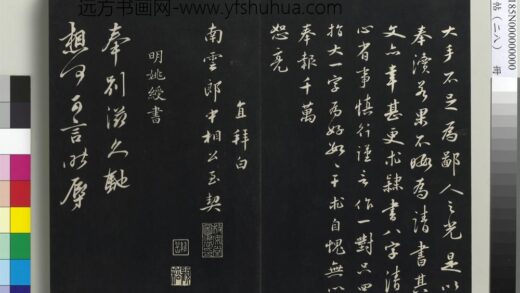 远方书画网-www.yfshuhua.com
大手不足為鄙人之光是以
奉瀆若果不晦為請書其
文六幸甚更求隸書八字清
心省事慎行謹言作一對只四
指大一字為好求自愧無以
奉報千萬
恕亮
直拜白
南雲郎中相公至契
明姚綬書
奉別滋久馳
想何可言比辱